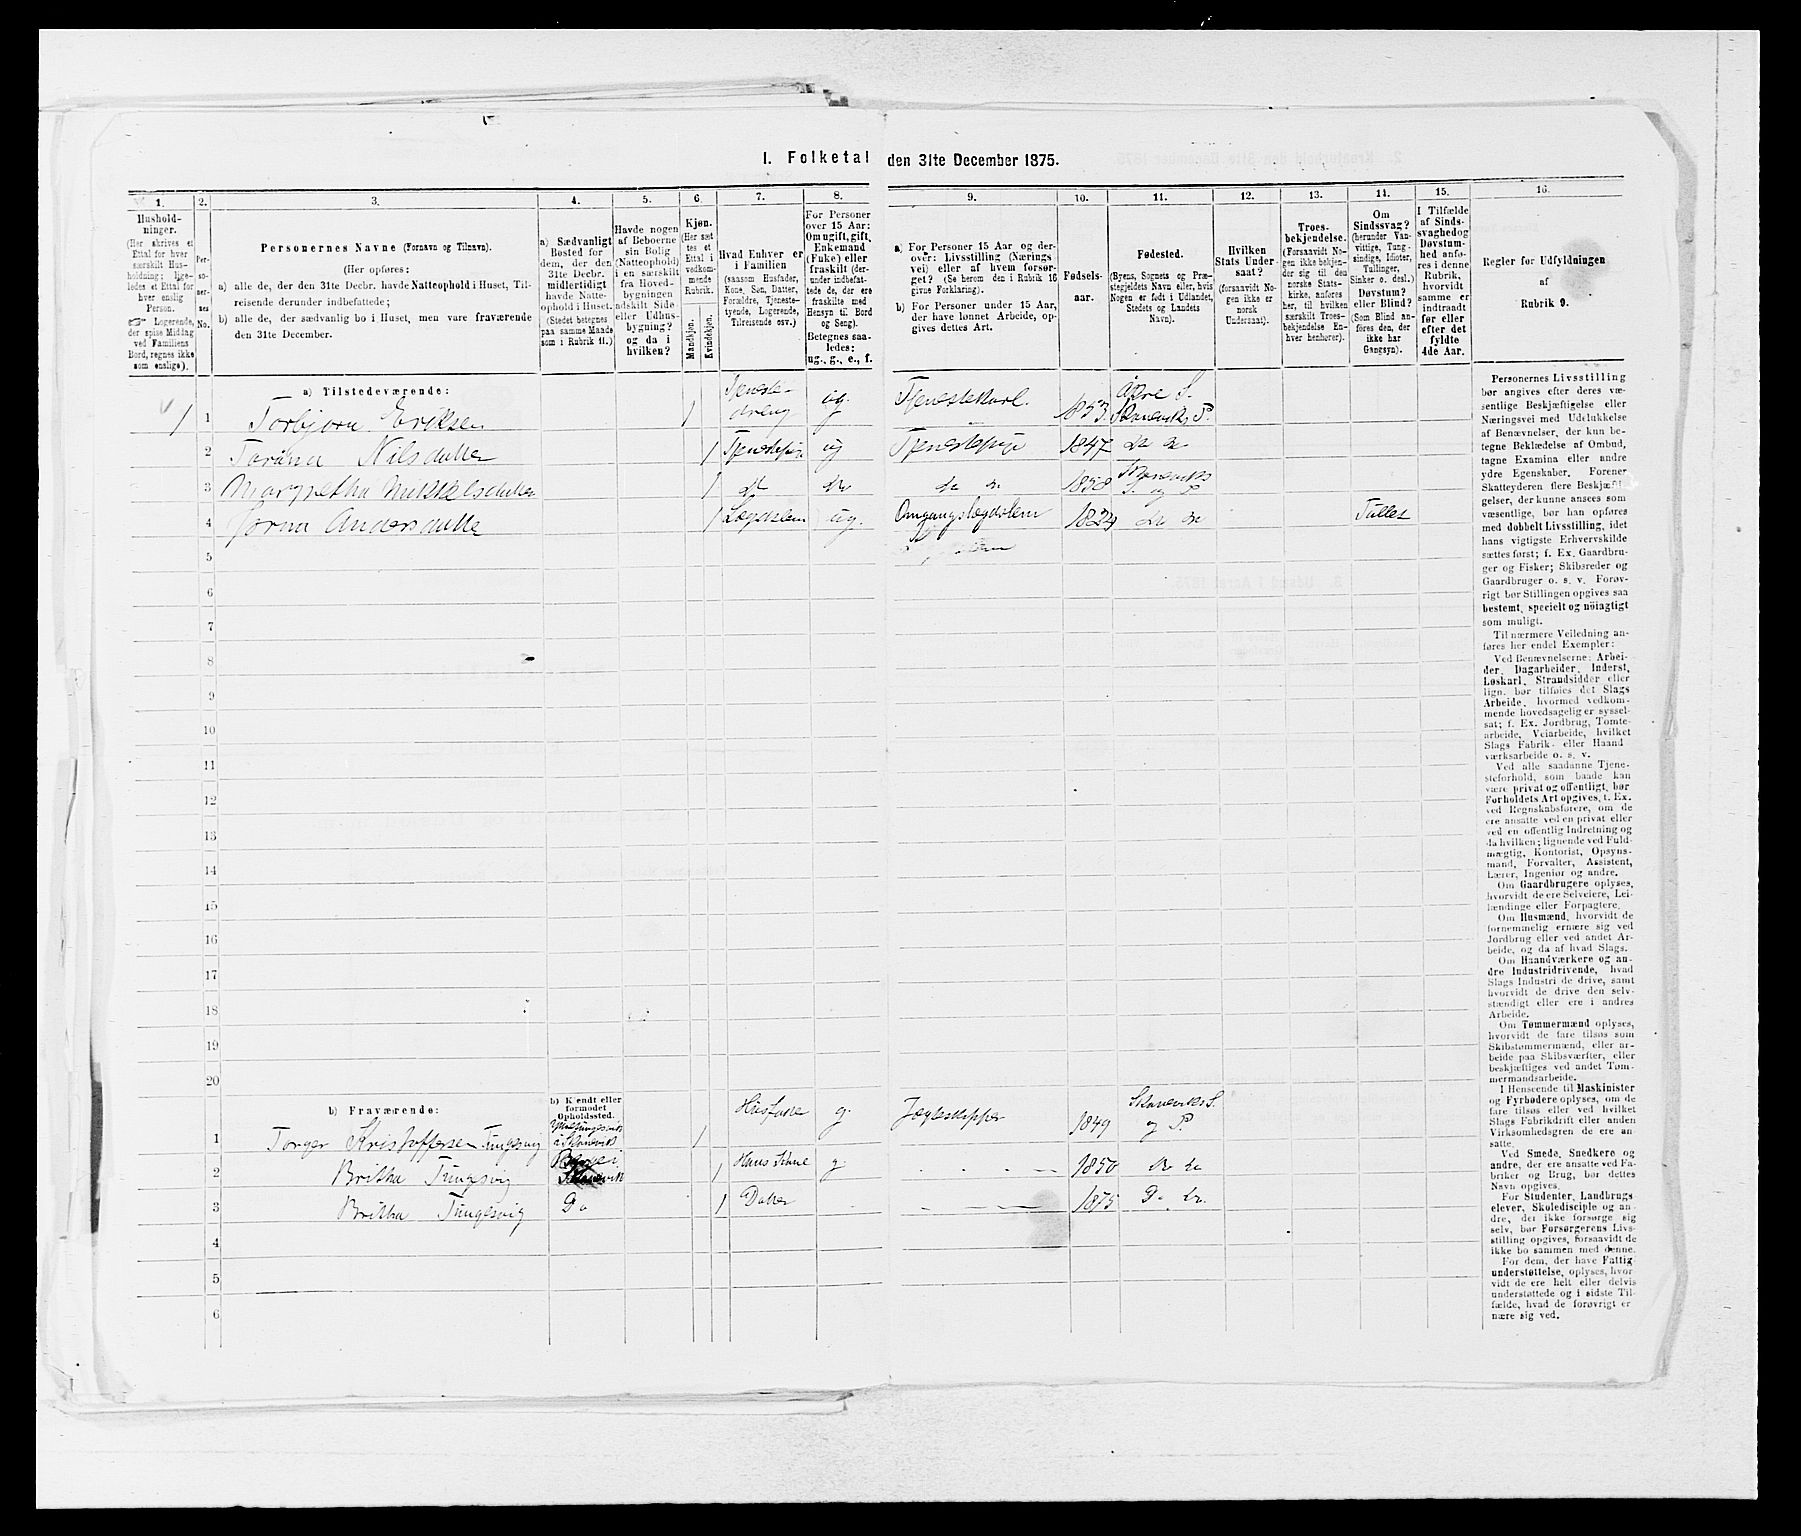 I. Folketal den 31te December 1875.
1. 2. 3. 4. 5. 6. 7. 8. 9. 10. 11. 12. 13. 14. 15. 16.
Hushold-
ninger.
(Her skrives et
Ettal for hver
særskilt Hus-
holdning; lige-
ledes et Ettal for
hver enslig
Person.
☞ Logerende,
der spise Middag
ved Familiens
Bord, regnes ikke
som enslige).
Per-
so-
ner-
nes
No.
Personernes Navne (Fornavn og Tilnavn).
(Her opføres:
a) alle de, der den 31te Decbr. havde Natteophold i Huset, Til-
reisende derunder indbefattede;
b) alle de, der sædvanlig bo i Huset, men vare fraværende
den 31te December.
a) Sædvanligt
Bosted for
dem, der den
31te Decbr.
midlertidigt
havde Natte-
ophold i Huset.
(Stedet betegnes
paa samme Maade
som i Rubrik 11.)
Havde nogen
af Beboerne
sin Bolig
(Natteophold)
i en særskilt
fra Hoved-
bygningen
adskilt Side
eller Udhus-
bygning?
og da i
hvilken?
Kjøn.
(Her sæt
tes et
Ettal i
vedkom-
mende
Rubrik.
Mandkjøn.
Kvindekjøn.
Hvad Enhver er
i Familien
(saasom Husfader,
Kone, Søn, Datter,
Forældre, Tjeneste-
tyende, Logerende,
Tilreisende osv.)
For Personer
over 15 Aar:
Om ugift, gift,
Enkemand
(Enke) eller
fraskilt (der-
under indbefat-
tede de, der ere
fraskilte med
Hensyn til Bord
og Seng).
Betegnes saa-
ledes:
ug., g., e., f.
a) For Personer 15 Aar og der-
over: Livsstilling (Nærings
vei) eller af hvem forsør-
get? (Se herom den i Rubrik 16
givne Forklaring).
b) For Personer under 15 Aar,
der have lønnet Arbeide, op-
gives dettes Art.
Fødsels-
aar.
Fødested.
(Byens, Sognets og Præ-
stegjeldets Navn eller, hvis
Nogen er født i Udlandet,
Stedets og Landets
Navn).
Hvilken
Stats Under-
saat?
(forsaavidt No-
gen ikke er
norsk
Undersaat).
Troes-
bekjendelse.
(Forsaavidt No-
gen ikke bekjen-
der sig til den
norske Stats-
kirke, anføres
her, til hvilken
særskilt Troes-
bekjendelse En-
hver henhører).
Om
Sindssvag?
(herunder Van-
vittige, Tung-
sindige, Idioter,
Tullinger,
Sinker o. desl.)
Døvstum?
eller Blind?
(Som Blind an-
føres den, der
ikke har
Gangsyn).
I Tilfælde
af Sinds-
svaghedog
Døvstum-
hed anfø-
res i denne
Rubrik,
hvorvidt
samme er
indtraadt
før eller
efter det
fyldte
4de Aar.
Regler for Udfyldningen
af
Rubrik 9.
a) Tilstedeværende:
1 1 Torbjørn Eriksen 1 Tjeneste-
dreng ug Tjenestekarl. 1853 S.
Skaneviks P.
2 Torina Nilsdatter 1 Tjenestepige ug Tjenestepige 1847 do do
3 Margretha Mikkelsdatter 1 do do do do 1858 Skaneviks
S. og P
4 Jorna Andersdatter 1 Lægdslem ug. Omgangslægdslem 1824 do do Tullet
5
6
7
8
9
10
11
12
13
14
15
16
17
18
19
20
b) Fraværende:
b) Kjendt eller
formodet
Opholdssted.
1 Torger Kristoffersen Tungesvig i Skonevik 1 Husfader g. 1849 Skaneviks S.
og P
2 Britha Tungesvig 1 Hans Kone g. 1850 Do do
3 Britha Tungesvig Do 1 Datter 1875 Do do.
4
5
6
Personernes Livsstilling
bør angives efter deres væ-
sentlige Beskjæftigelse eller
Næringsvei med Udelukkelse
af Benævnelser, der kun be-
tegne Beklædelse af Ombud,
tagne Examina eller andre
ydre Egenskaber. Forener
Skatteyderen flere Beskjæfti
gelser, der kunne ansees som
væsentlige, bør han opføres
med dobbelt Livsstilling, idet
hans vigtigste Erhvervskilde
sættes først; f. Ex. Gaardbru-
ger og Fisker; Skibsreder og
Gaardbruger o. s. v. Forøv-
rigt bør Stillingen opgives saa
bestemt, specielt og nöiagtigt
som muligt.
Til nærmere Veiledning an-
føres her endel Exempler:
Ved Benævnelserne: Arbei-
der, Dagarbeider, Inderst,
Løskarl, Strandsidder eller
lign. bør tilføies det Slags
Arbeide, hvormed vedkom-
mende hovedsagelig er syssel-
sat; f. Ex. Jordbrug, Tomte-
arbeide, Veiarbeide, hvilket
Slags Fabrik- eller Haand
værksarbeide o. s. v.
Ved alle saadanne Tjene-
steforhold, som baade kan
være privat og offentligt, bør
Forholdets Art opgives, t. Ex.
ved Regnskabsførere, om de
ere ansatte ved en privat eller
ved en offentlig Indretning og
da hvilken; lignende ved Fuld-
mægtig, Kontorist, Opsyns-
mand, Forvalter, Assistent,
Lærer, Ingeniør og andre.
Om Gaardbrugere oplyses,
hvorvidt de ere Selveiere, Lei-
lændinge eller Forpagtere.
Om Husmænd, hvorvidt de
fornemmelig ernære sig ved
Jordbrug eller ved andet Ar-
beide, og da af hvad Slags.
Om Haandværkere og an-
dre Industridrivende, hvad
Slags Industri de drive, samt
hvorvidt de drive den selv-
stændigt eller ere i andres
Arbeide.
Om Tømmermænd oplyses,
hvorvidt de fare tilsøs som
Skibstømmermænd, eller ar-
beide paa Skibsværfter, eller
beskjæftiges ved andet Tøm-
mermandsarbeide.
I Henseende til Maskinister
og Fyrbødere oplyses, om de
fare tilsøs eller ved hvilket
Slags Fabrikdrift eller anden
Virksomhedsgren de ere an-
satte.
Ved Smede, Snedkere og
andre, der ere ansatte ved Fa-
briker og Brug, bør dettes
Navn opgives.
For Studenter, Landbrugs
elever, Skoledisciple og an-
dre, der ikke forsørge sig
selv, bør Forsørgerens Livs-
stilling opgives, forsaavidt de
ikke bo sammen med denne.
For dem, der have Fattig
understøttelse, oplyses, hvor
vidt de ere helt eller delvis
understøttede og i sidste Til-
fælde, hvad de forøvrigt er
nære sig ved.